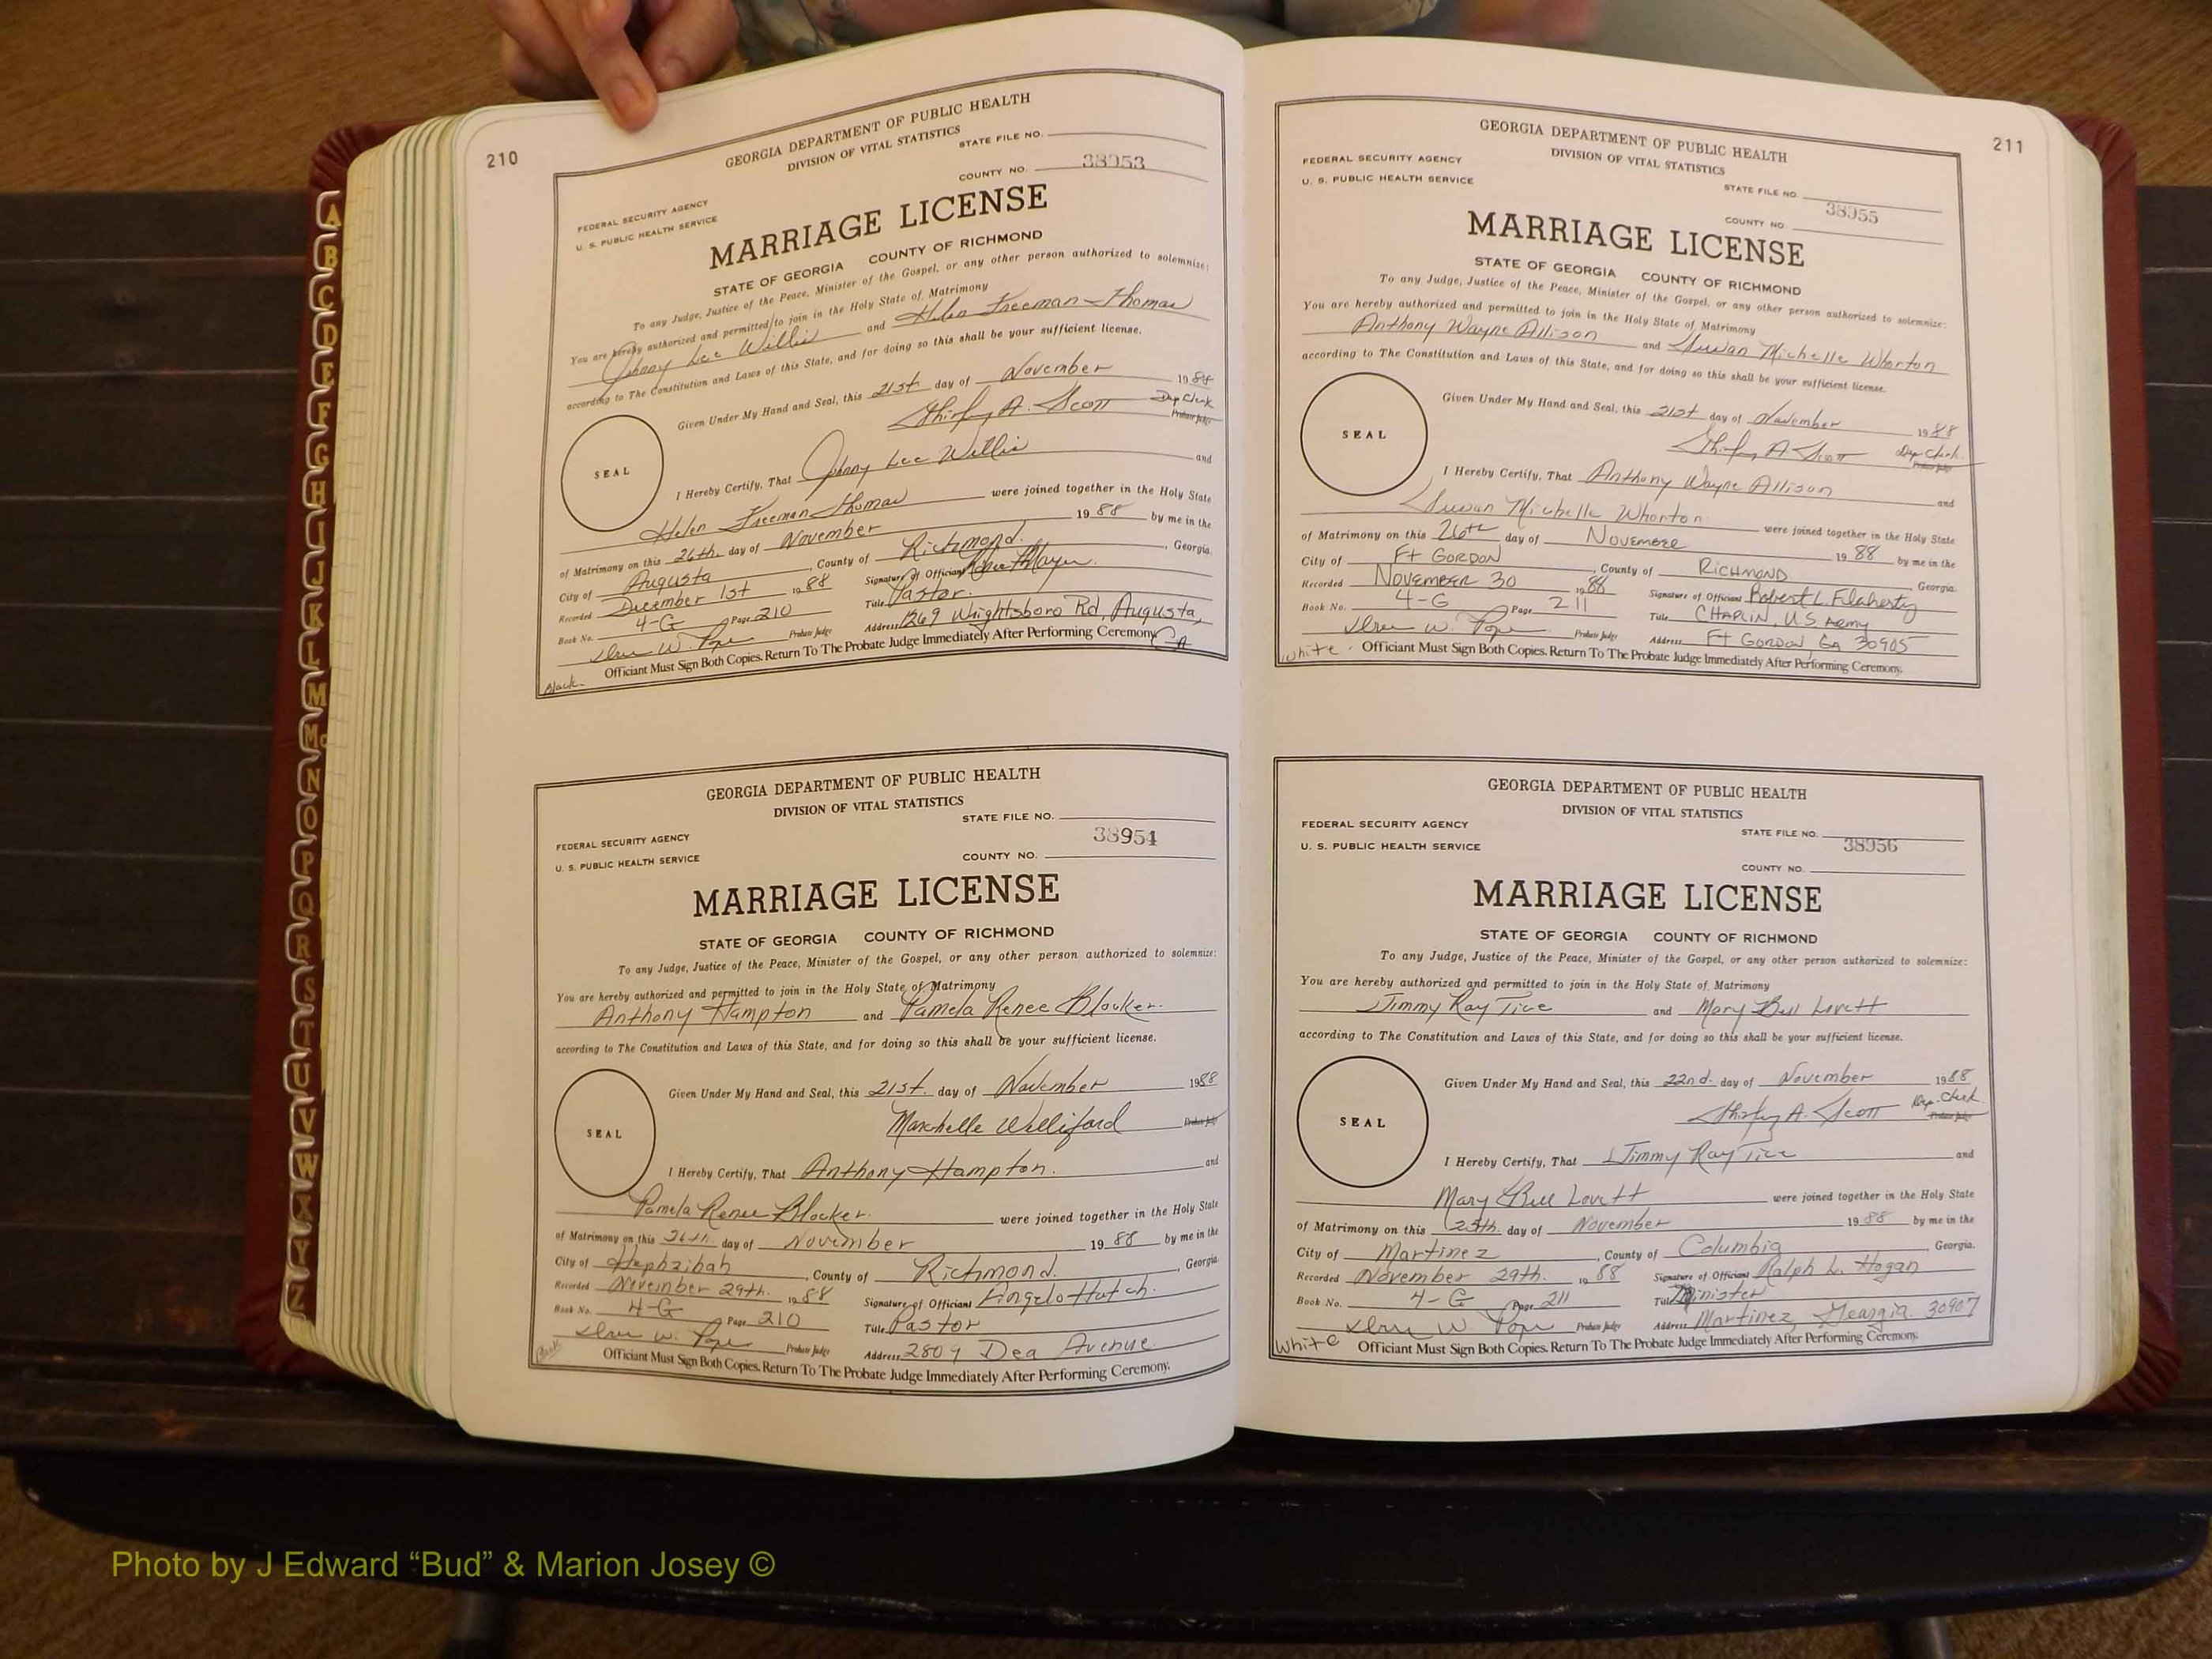 210
GEORGIA DEPARTMENT OF PUBLIC HEALTH
DIVISION OF VITAL STATISTICS
STATE FILE NO.
38953
COUNTY NO.
FEDERAL SECURITY AGENCY
U. S. PUBLIC HEALTH SERVICE
MARRIAGE LICENSE
STATE OF GEORGIA COUNTY OF RICHMOND
To any Judge, Justice of the Peace, Minister of the Gospel, or any other person authorized to solemnize:
You are hereby authorized and permitted to join in the Holy State of Matrimony
Johnny Lee Willis and Helen Freeman Thomas
according to The Constitution and Laws of this State, and for doing so this shall be your sufficient license.
Given Under My Hand and Seal, this 21st day of November 1988
Shirley A. Scott Dep Clerk
Probate Judge
SEAL
I Hereby Certify, That Johnny Lee Willis and
Helen Freeman Thomas were joined together in the Holy State
of Matrimony on this 26th. day of November 1988 by me in the
City of Augusta, County of Richmond., Georgia.
Recorded December 1st 1988 Signature of Official
Book No. 4-G Page 210 Title Pastor.
W. Pope Probate Judge Address 1269 Wrightsboro Rd, Augusta, GA
Officiant Must Sign Both Copies. Return To The Probate Judge Immediately After Performing Ceremony.
Black
GEORGIA DEPARTMENT OF PUBLIC HEALTH
DIVISION OF VITAL STATISTICS
STATE FILE NO.
38954
COUNTY NO.
FEDERAL SECURITY AGENCY
U. S. PUBLIC HEALTH SERVICE
MARRIAGE LICENSE
STATE OF GEORGIA COUNTY OF RICHMOND
To any Judge, Justice of the Peace, Minister of the Gospel, or any other person authorized to solemnize:
You are hereby authorized and permitted to join in the Holy State of Matrimony
Anthony Hampton and Pamela Renee Blocker.
according to The Constitution and Laws of this State, and for doing so this shall be your sufficient license.
Given Under My Hand and Seal, this 21st. day of November 1988
Marchelle Welliford Probate Judge
SEAL
I Hereby Certify, That Anthony Hampton. and
Pamela Renee Blocker. were joined together in the Holy State
of Matrimony on this 26th. day of November 1988 by me in the
City of Hephzibah, County of Richmond., Georgia.
Recorded November 29th. 1988 Signature of Official Hutch.
Book No. 4-G Page 210 Title Pastor
W. Pope Probate Judge Address 2809 Dea Avenue
Black
Officiant Must Sign Both Copies. Return To The Probate Judge Immediately After Performing Ceremony.
211
GEORGIA DEPARTMENT OF PUBLIC HEALTH
DIVISION OF VITAL STATISTICS
FEDERAL SECURITY AGENCY
U. S. PUBLIC HEALTH SERVICE
STATE FILE NO.
38955
COUNTY NO.
MARRIAGE LICENSE
STATE OF GEORGIA COUNTY OF RICHMOND
To any Judge, Justice of the Peace, Minister of the Gospel, or any other person authorized to solemnize:
You are hereby authorized and permitted to join in the Holy State of Matrimony
Anthony Wayne Allison and Susan Michelle Whorton
according to The Constitution and Laws of this State, and for doing so this shall be your sufficient license.
Given Under My Hand and Seal, this 21st day of November 1988
Shirley A Scott Dep Clerk.
Probate Judge
SEAL
I Hereby Certify, That Anthony Wayne Allison and
Susan Michelle Whorton were joined together in the Holy State
of Matrimony on this 26th day of November 1988 by me in the
City of Ft GORDON, County of RICHMOND, Georgia.
Recorded NOVEMBER 30 1988 Signature of Official Robert L. Flaherty
Book No. 4-G Page 211 Title CHAPLIN, U.S Army
W. Pope Probate Judge Address Ft GORDON, GA 30905
White. Officiant Must Sign Both Copies. Return To The Probate Judge Immediately After Performing Ceremony.
GEORGIA DEPARTMENT OF PUBLIC HEALTH
DIVISION OF VITAL STATISTICS
FEDERAL SECURITY AGENCY
U. S. PUBLIC HEALTH SERVICE
STATE FILE NO.
38956
COUNTY NO.
MARRIAGE LICENSE
STATE OF GEORGIA COUNTY OF RICHMOND
To any Judge, Justice of the Peace, Minister of the Gospel, or any other person authorized to solemnize:
You are hereby authorized and permitted to join in the Holy State of Matrimony
Jimmy Ray Tice and Mary Bell Lovett
according to The Constitution and Laws of this State, and for doing so this shall be your sufficient license.
Given Under My Hand and Seal, this 22nd. day of November 1988
Shirley A. Scott Dep. Clerk.
Probate Judge
SEAL
I Hereby Certify, That Jimmy Ray Tice and
Mary Bell Lovett were joined together in the Holy State
of Matrimony on this 25th. day of November 1988 by me in the
City of Martinez, County of Columbia, Georgia.
Recorded November 29th. 1988 Signature of Official Ralph L. Hogan
Book No. 4-G Page 211 Title Minister
W. Pope Probate Judge Address Martinez, Georgia 30907
White Officiant Must Sign Both Copies. Return To The Probate Judge Immediately After Performing Ceremony.
A
B
C
D
E
F
G
H
I
J
K
L
M
Mc
N
O
P
Q
R
S
T
U
V
W
X
Y
Z
Photo by J Edward “Bud” & Marion Josey ©